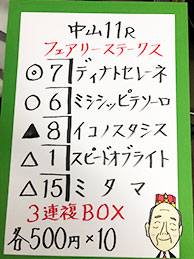 中山11R
フェアリーステークス
◎7 ディナトセレーネ
○6 ミシシッピテソーロ
▲8 イコノスタシス
△1 スピードオブライト
△15 ミタマ
3連複BOX
各500円×10